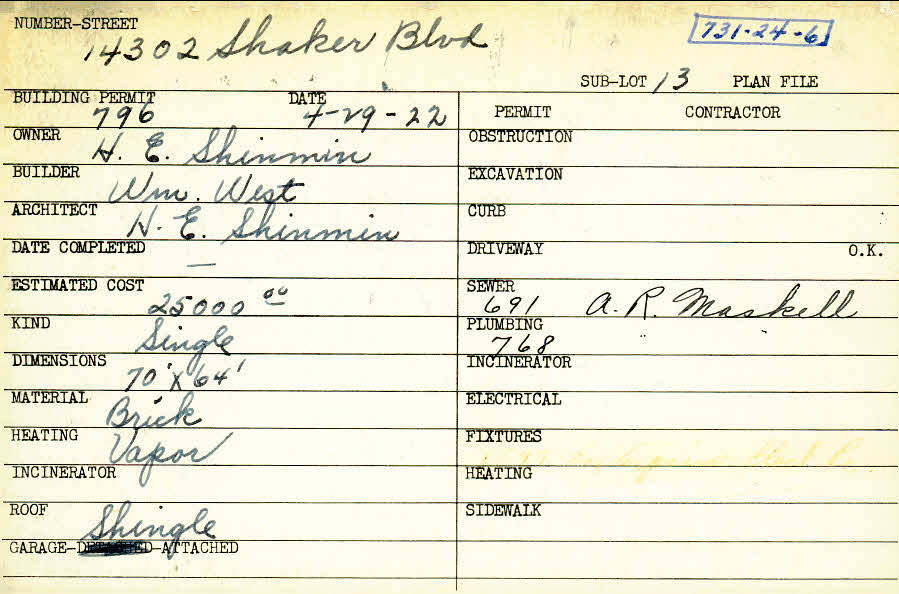 NUMBER-STREET
14302 Shaker Blvd
731-24-6
SUB-LOT 13 PLAN FILE
BUILDING PERMIT DATE
796 4-29-22
PERMIT CONTRACTOR
OWNER
H. E. Shinmin
OBSTRUCTION
BUILDER
Wm. West
EXCAVATION
ARCHITECT
H. E. Shinmin
CURB
DATE COMPLETED
—
DRIVEWAY O.K.
ESTIMATED COST
25000 00
SEWER
691 A. R. Maskell
KIND
Single
PLUMBING
768
DIMENSIONS
70' X 64'
INCINERATOR
MATERIAL
Brick
ELECTRICAL
HEATING
Vapor
FIXTURES
INCINERATOR
HEATING
ROOF
Shingle
SIDEWALK
GARAGE-DETACHED-ATTACHED